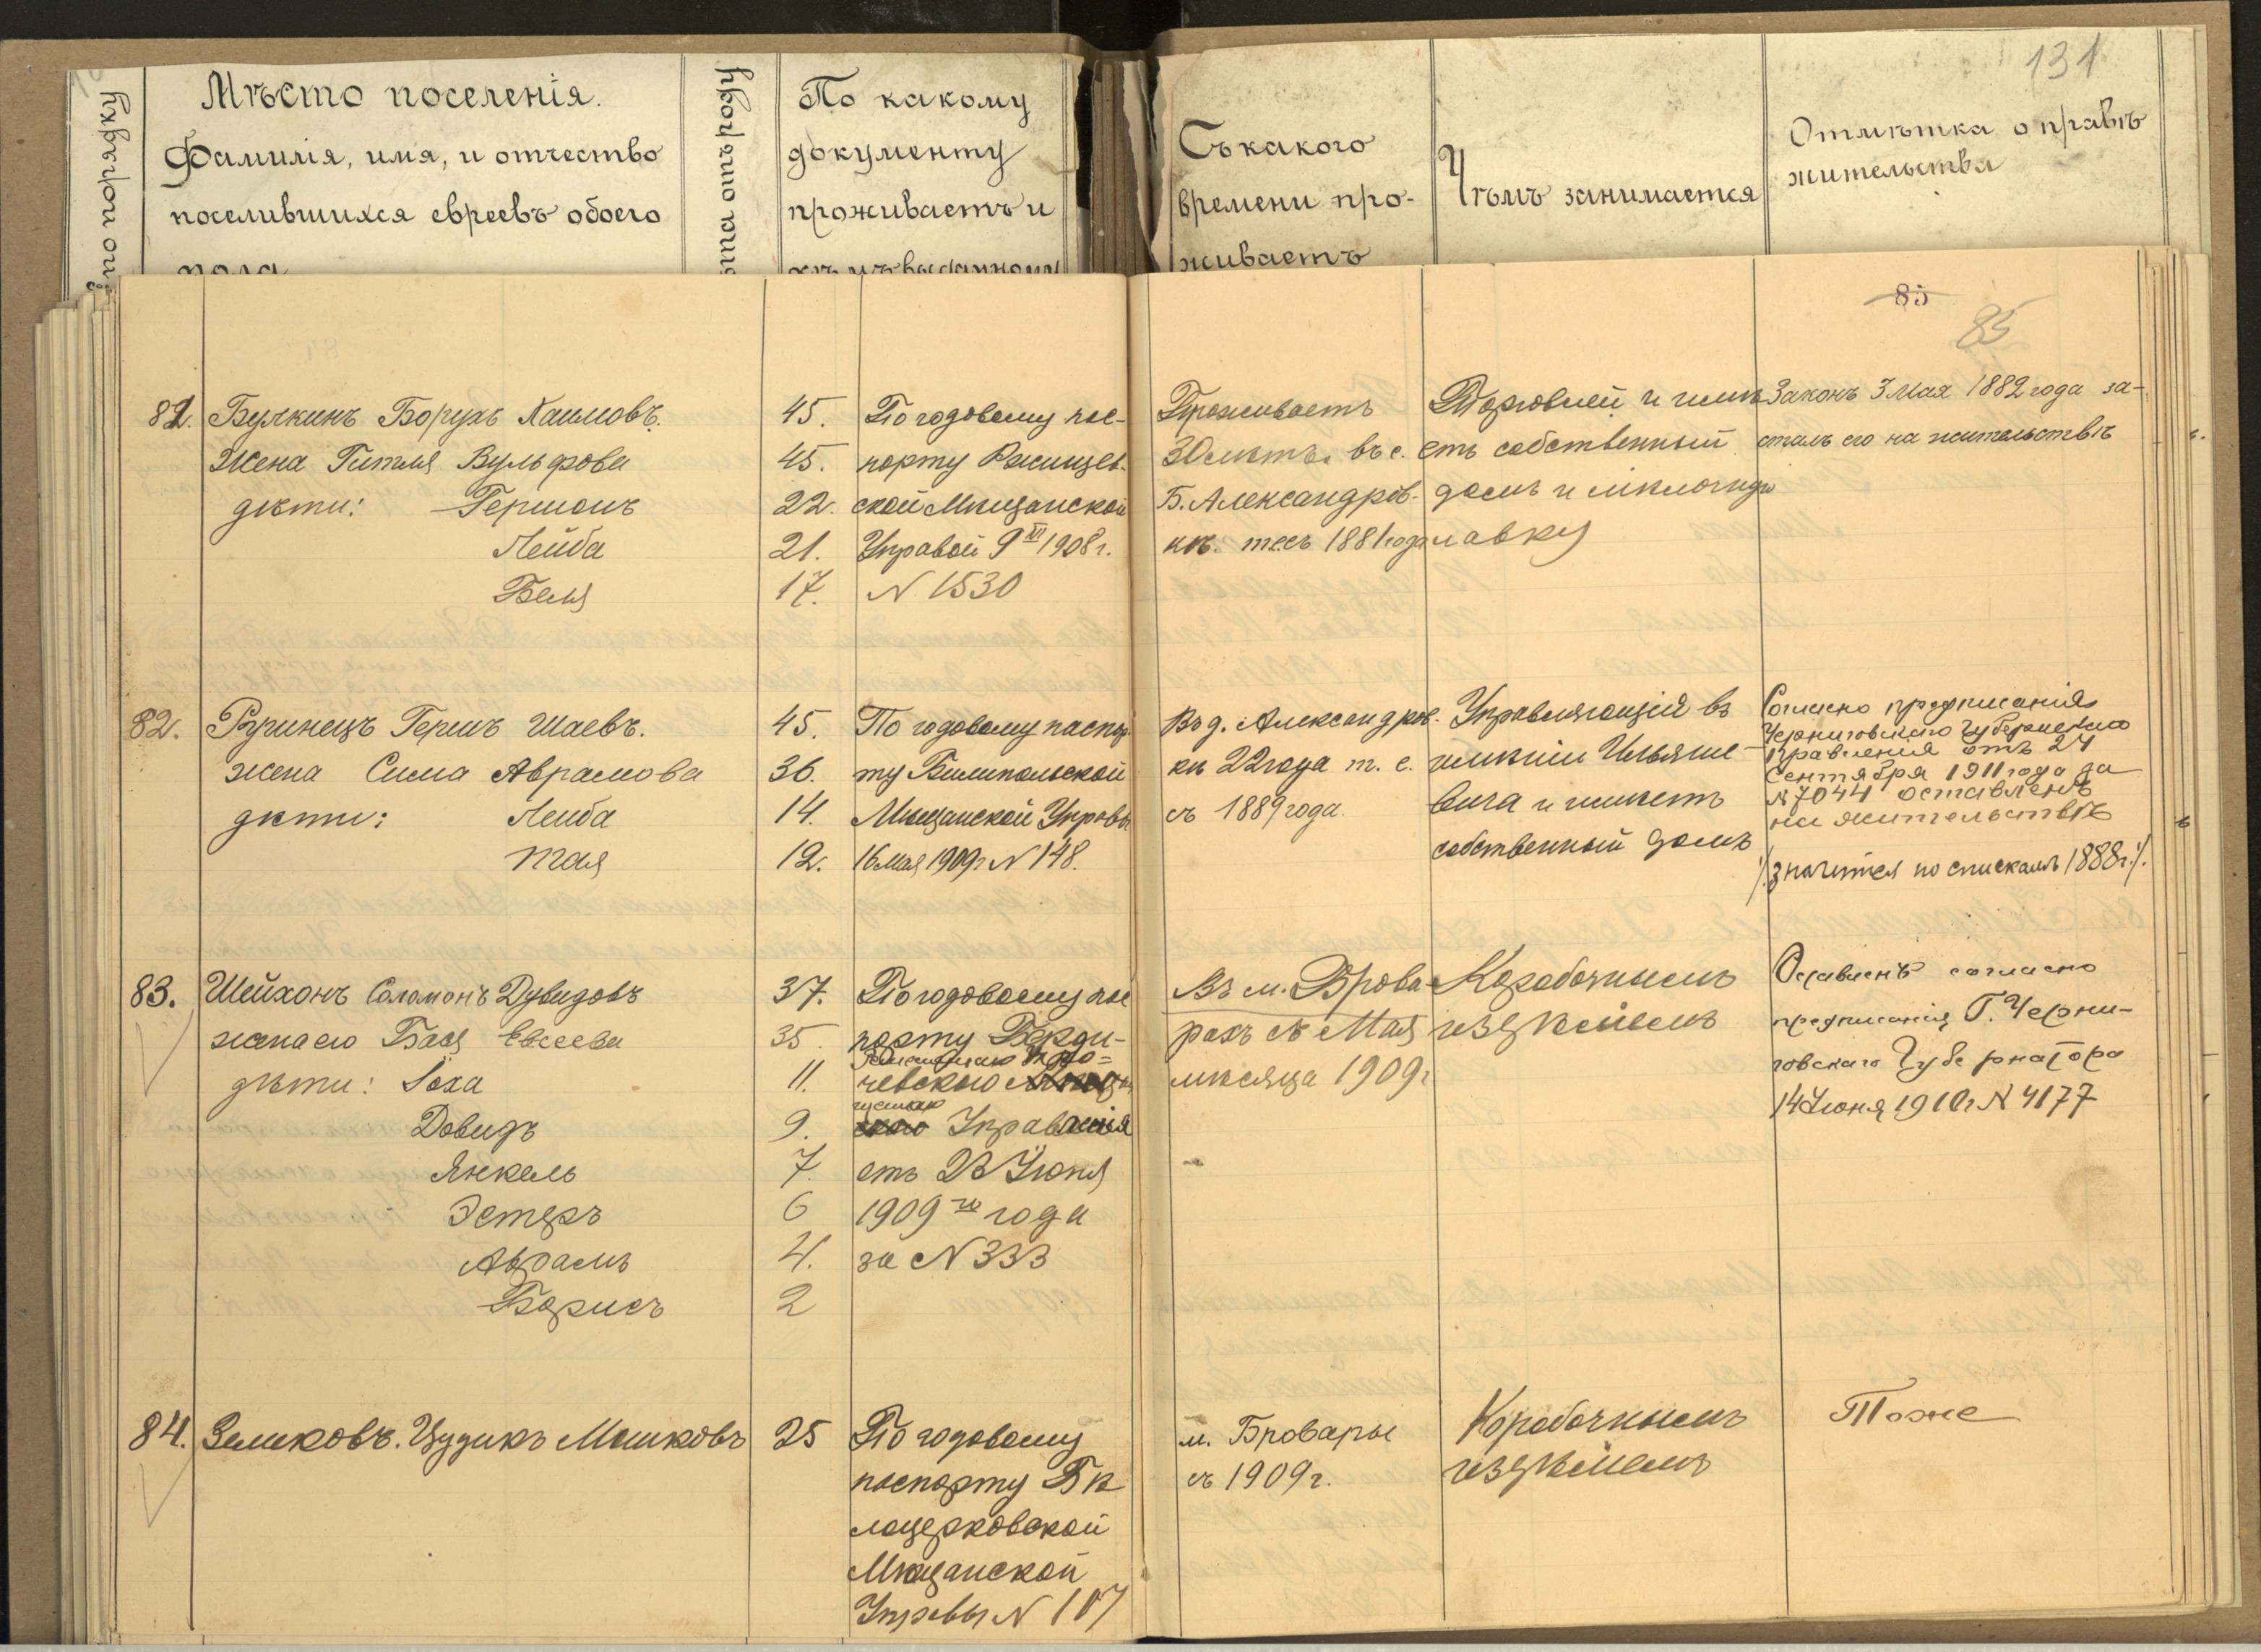 131
№ по порядку
Мѣсто поселенія.
Фамилія, имя, и отчество
поселившихся евреевъ обоего
пола
лѣта отъ роду
По какому
документу
проживаетъ и
кѣмъ выданному
Съ какого
времени про-
живаетъ
Чѣмъ занимается
Отмѣтка о правѣ
жительства
85
85
81.
Булкинъ Борухъ Хаимовъ.
45.
Жена Гитля Вульфова
45.
дѣти: Гершонъ
22.
Лейба
21.
Беля
17.
По годовому пас-
порту Ржищев-
ской Мѣщанской
Управой 9 XI 1908 г.
N 1530
Проживаетъ
30 лѣтъ. въ с.
Б. Александров-
кѣ. т.е.съ 1881 года
Торговлей и имѣ-
етъ собственный
домъ и мѣлочную
лавку
Законъ 3 Мая 1882 года за-
сталъ его на жительствѣ
82.
Ружинецъ Гершъ Шаевъ.
45.
жена Сима Аврамова
36.
дѣти: Лейба
14.
Тая
12.
По годовому паспор-
ту Билипольской
Мѣщанской Управы
16 Мая 1909 г N 148.
Въ д. Александров-
кѣ 22 года т. е.
съ 1889 года.
Управляющій въ
имѣніи Ильяше-
вича и имѣетъ
собственный домъ
Согласно предписанія
Черниговскаго Губернскаго
Правленія отъ 24
Сентября 1911 года за
№ 7044 оставленъ
на жительствѣ
/значится по спискамъ 1888 г./.
83.
Шейхонъ Соломонъ Дувидовъ
37.
жена его Бася Евсеева
35.
дѣти: Соха
11.
Довидъ
9.
Янкель
7.
Эстеръ
6
Аврамъ
4.
Борисъ
2
По годовому пас
порту Берди-
Ремесленнаго
чевскаго
Управленія
отъ 23 Іюня
1909 го года
за N 333
Въ м. Брова-
рахъ съ Мая
мѣсяца 1909 г
Коробочнымъ
издѣліемъ
Оставленъ согласно
предписанія Г. Черни-
говскаго Губернатора
14 Іюня 1910 г N 4177
84.
Зимковъ. Цудикъ Мошковъ
25
По годовому
паспорту Бѣ
лоцерковской
Мѣщанской
Управы N 107
м. Бровары
съ 1909 г.
Коробочнымъ
издѣліемъ
Тоже